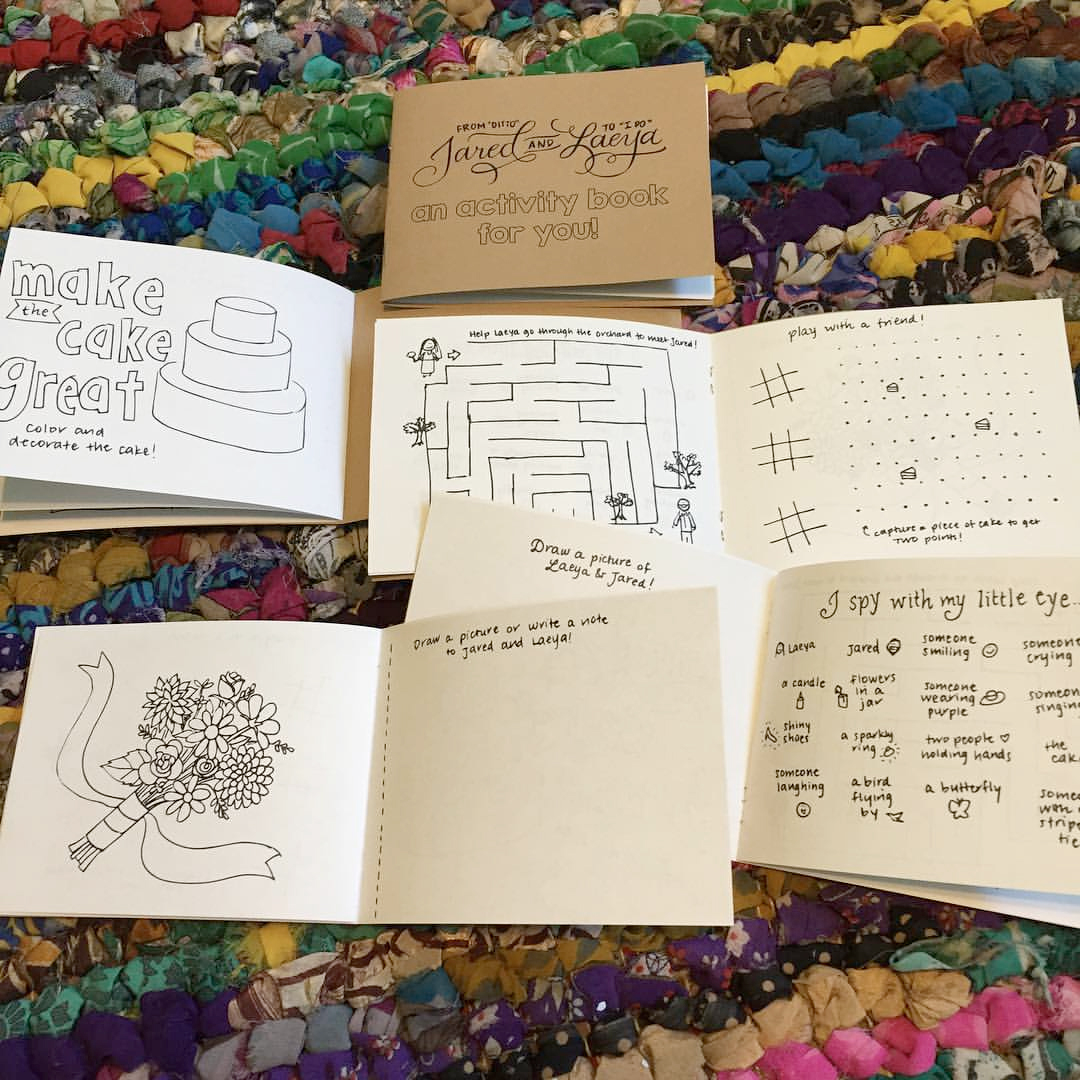 FROM "DITTO" TO "I DO"
Jared AND Laeya
an activity book
for you!
make
the
cake
great
color and
decorate the cake!
Help Laeya go through the orchard to meet Jared!
play with a friend!
capture a piece of cake to get
TWO points!
Draw a picture of
Laeya & Jared!
Draw a picture or write a note
to Jared and Laeya!
I spy with my little eye...
Laeya
Jared
someone
smiling
someone
crying
a candle
flowers
in a
jar
someone
wearing
purple
shiny
shoes
a sparkly
ring
two people
holding hands
the
someone
laughing
a bird
flying
by
a butterfly